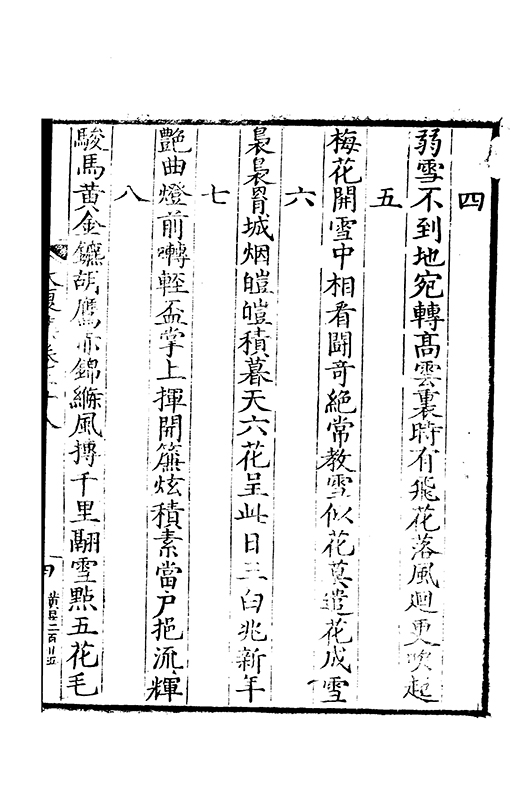 四
弱雪不到地宛轉高雲裏時有飛花落風迴更吹起
五
梅花開雪中相看鬪奇絕常教雪似花莫遣花成雪
六
裊裊胃城烟皚皚積暮天六花呈此日三白兆新年
七
艷曲燈前囀輕盃掌上揮開簾炫積素當户挹流輝
八
駿馬黃金鑣胡鷹赤錦絛風摶千里翮雪點五花毛